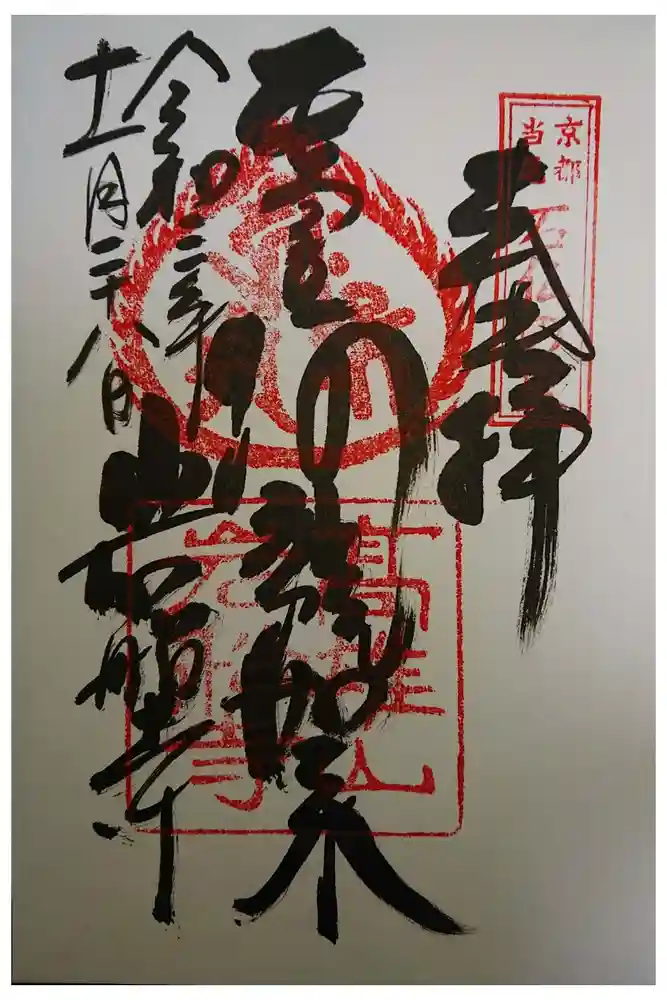 京都
当尾
石仏の里
奉拝
阿弥陀如来
高雄山
岩船寺
令和二年
十一月二十八日